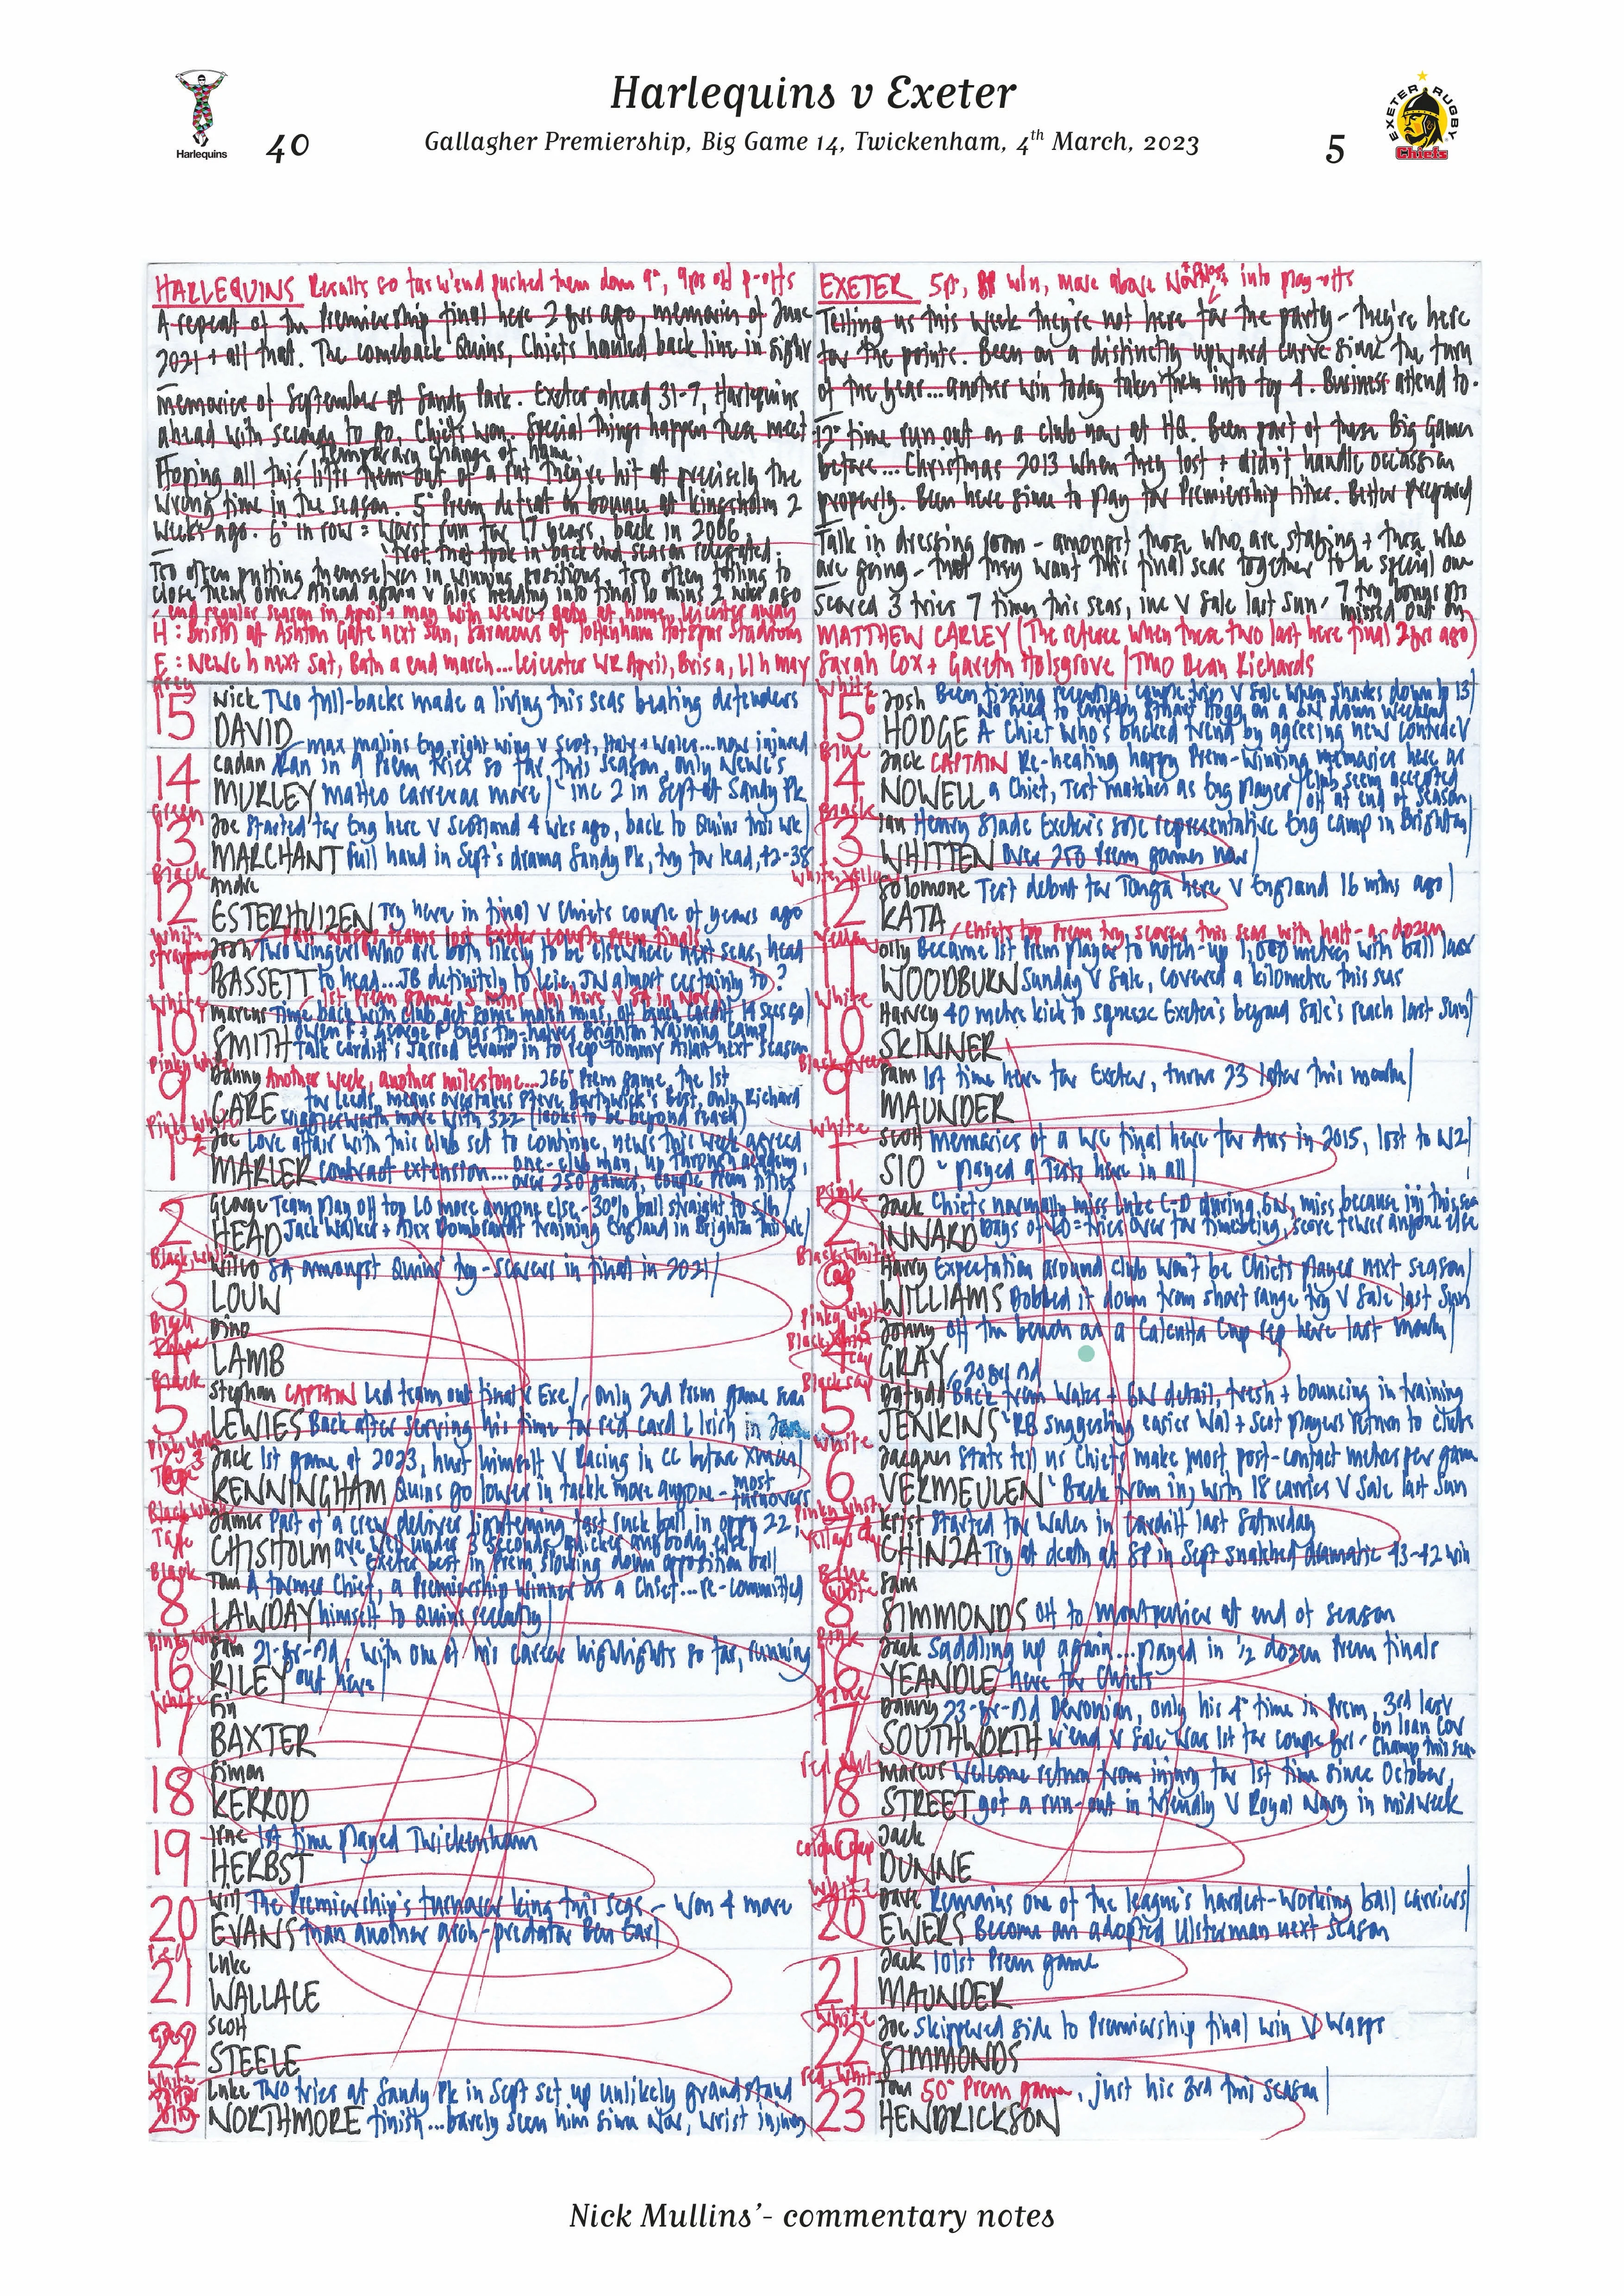 Harlequins v Exeter
Harlequins 40 Gallagher Premiership, Big Game 14, Twickenham, 4th March, 2023 5 EXETER RUGBY Chiefs
HARLEQUINS Results so far w'end pushed them down 9°, 9pts off p-offs
A repeat of the Premiership final here 2 yrs ago, memories of June
2021 + all that. The comeback Quins, Chiefs hauled back line in sight
memories of September at Sandy Park. Exeter ahead 31-7, Harlequins
ahead with seconds to go, Chiefs won. Special things happen these meet
temporary change of home.
Hoping all this lifts them out of a rut they've hit at precisely the
wrong time in the season. 5° Prem defeat on bounce at Kingsholm 2
weeks ago. 6° in row = worst run for 17 years, back in 2006
not that took in back end season relegated.
Too often putting themselves in winning positions, too often failing to
close them down. Ahead again v Glos heading into final 10 mins 2 wks ago
end regular season in April + May with Newc + Bath at home, Leicester away
H: Bristol at Ashton Gate next Sun, Saracens at Tottenham Hotspur Stadium
E: Newc h next Sat, Bath a end March...Leicester WR April, Bris a, LI h May
EXETER 5pt, win, move above into play-offs
Telling us this week they're not here for the party - they're here
for the points. Been on a distinctly upward curve since the turn
of the year...another win today takes them into top 4. Business attend to.
12° time run out as a club now at HQ. Been part of these Big Games
before...Christmas 2013 when they lost + didn't handle occassion
properly. Been here since to play for Premiership titles. Better prepared
Talk in dressing room - amongst those who are staying + those who
are going - that they want this final seas together to be special one
Scored 3 tries 7 times this seas, inc v Sale last Sun, 7 try bonus pts
missed out by
MATTHEW CARLEY (The referee when these two last here final 2yrs ago)
Sarah Cox + Gareth Holsgrove | TMO Dean Richards
Grey
15 Nick Two full-backs made a living this seas beating defenders
DAVID
max malins Eng right wing v Scot, Italy + Wales...now injured
14 Cadan Ran in 9 Prem tries so far this season, only Newc's
MURLEY Matteo Carreras more inc 2 in Sept at Sandy Pk
Green
13 Joe Started for Eng here v Scotland 4 wks ago, back to Quins this wk
MARCHANT full hand in Sept's drama Sandy Pk, try for lead, 42-38
Black
12 Andre
ESTERHUIZEN Try here in final v Chiefs couple of years ago
White strapping
Part Wasps teams lost Exeter couple Prem finals
11 Josh Two wingers who are both likely to be elsewhere next seas, head
BASSETT to head...JB definitely to Leic, JN almost certainly to?
White
10 Marcus Time back with club, get some match mins
SMITH
Talk Cardiff's Jarrod Evans in to rep Tommy Allan next season
Pinky White
9 Danny Another week, another milestone...266° Prem game, the 1st
CARE for Leeds, means overtakes Steve Borthwick's best, only Richard
Wigglesworth more with 322 (looks to be beyond reach)
Pinky White
1 Joe Love affair with this club set to continue, news this week agreed
MARLER contract extension...one-club man, up through academy,
over 250 games, couple Prem titles
2 George Team play off top LO more anyone else - 30% ball straight to
HEAD Jack Walker + Alex Dombrandt training England in Brighton this wk
Black, white
3 Wilco SA amongst Quins' try-scorers in final in 2021
LOUW
Black
4 Dino
LAMB
Black
5 Stephan CAPTAIN Led team out final v Exe, only 2nd Prem game seas
LEWIES Back after serving his time for red card L Irish in Jan
6 Jack 1st game of 2023, hurt himself v Racing in CC before Xmas
KENNINGHAM Quins go lower in tackle more anyone - most
turnovers
Black White Tape
7 James Part of a crew deliver lightening fast ruck ball in opps 22,
CHISHOLM ave well under 3 seconds, quicker anybody else
Exeter best in Prem slowing down opposition ball
Black
8 Tom A former Chief, a Premiership winner as a Chief...re-committed
LAWDAY himself to Quins recently
Pinky White
16 Sam 21-yr-old with one of his career highlights so far, running
RILEY out here
White
17 Fin
BAXTER
18 Simon
KERROD
19 Irne 1st time played Twickenham
HERBST
20 Will The Premiership's turnover king this seas - won 4 more
EVANS than another arch-predator Ben Earl
Red
21 Luke
WALLACE
Grey
22 Scott
STEELE
White
23 Luke Two tries at Sandy Pk in Sept set up unlikely grandstand
NORTHMORE finish...barely seen him since Nov, wrist injury
White
15 Josh Been fizzing recently, couple tries v Sale when Sharks down to 13
No need to employ Stuart Hogg on a 6N down weekend
HODGE A Chief who's bucked trend by agreeing new contract
Blue
14 Jack CAPTAIN Re-heating happy Prem-winning memories here as
NOWELL a Chief, Test matches as Eng player Club seem accepted
off at end of season
Black
13 Ian Henry Slade Exeter's sole representative Eng camp in Brighton
WHITTEN Over 250 Prem games now
White, Yellow
12 Solomone Test debut for Tonga here v England 16 mths ago
KATA
Chiefs top Prem try scorer this seas with half-a-dozen
Yellow
11 Olly Became 1st Prem player to notch-up 1,000 metres with ball last
WOODBURN Sunday v Sale, covered a kilometre this seas
White
10 Harvey 40 metre kick to squeeze Exeter's beyond Sale's reach last Sun
SKINNER
Black Green
9 Sam 1st time here for Exeter, turns 23 later this month
MAUNDER
White
1 Scott Memories of a WC final here for Aus in 2015, lost to NZ
SIO played 9 Tests here in all
Pink
2 Jack Chiefs normally miss Luke C-D during 6N, miss because inj this sea
INNARD Days of LO = tries over for timebeing, score fewer anyone else
Black White Cap
3 Harry Expectation around club won't be Chiefs player next season
WILLIAMS Dobbed it down from short range try v Sale last Sun
Pinky White
4 Jonny Off the bench as a Calcutta Cup rep here last month
GRAY
20 yrs old
5 Dafydd Back from Wales + 6N detail, fresh + bouncing in training
JENKINS RB suggesting easier Wal + Scot players return to clubs
White
6 Jacques Stats tell us Chiefs make most post-contact metres per game
VERMEULEN Back from inj with 18 carries v Sale last Sun
Pinky White
7 Christ Started for Wales in Cardiff last Saturday
TSHIUNZA Try at death at SP in Sept snatched dramatic 43-42 win
Blue White
8 Sam
SIMMONDS Off to Montpellier at end of season
Pink
16 Jack Saddling up again...played in ½ dozen Prem finals
YEANDLE here for Chiefs
Blue
17 Danny 23-yr-old Devonian, only his 4° time in Prem, 3rd last
SOUTHWORTH w'end v Sale was 1st for couple yrs - on loan Cov
Champ this sea
18 Marcus Welcome return from injury for 1st time since October,
STREET got a run-out in friendly v Royal Navy in midweek
19 Jack
DUNNE
White
20 Dave Remains one of the league's hardest-working ball carriers
EWERS Become an adopted Ulsterman next season
21 Jack 101st Prem game
MAUNDER
White
22 Joe Skippered side to Premiership final win v Wasps
SIMMONDS
Red, White
23 Tom 50° Prem game, just his 3rd this season
HENDRICKSON
Nick Mullins'- commentary notes